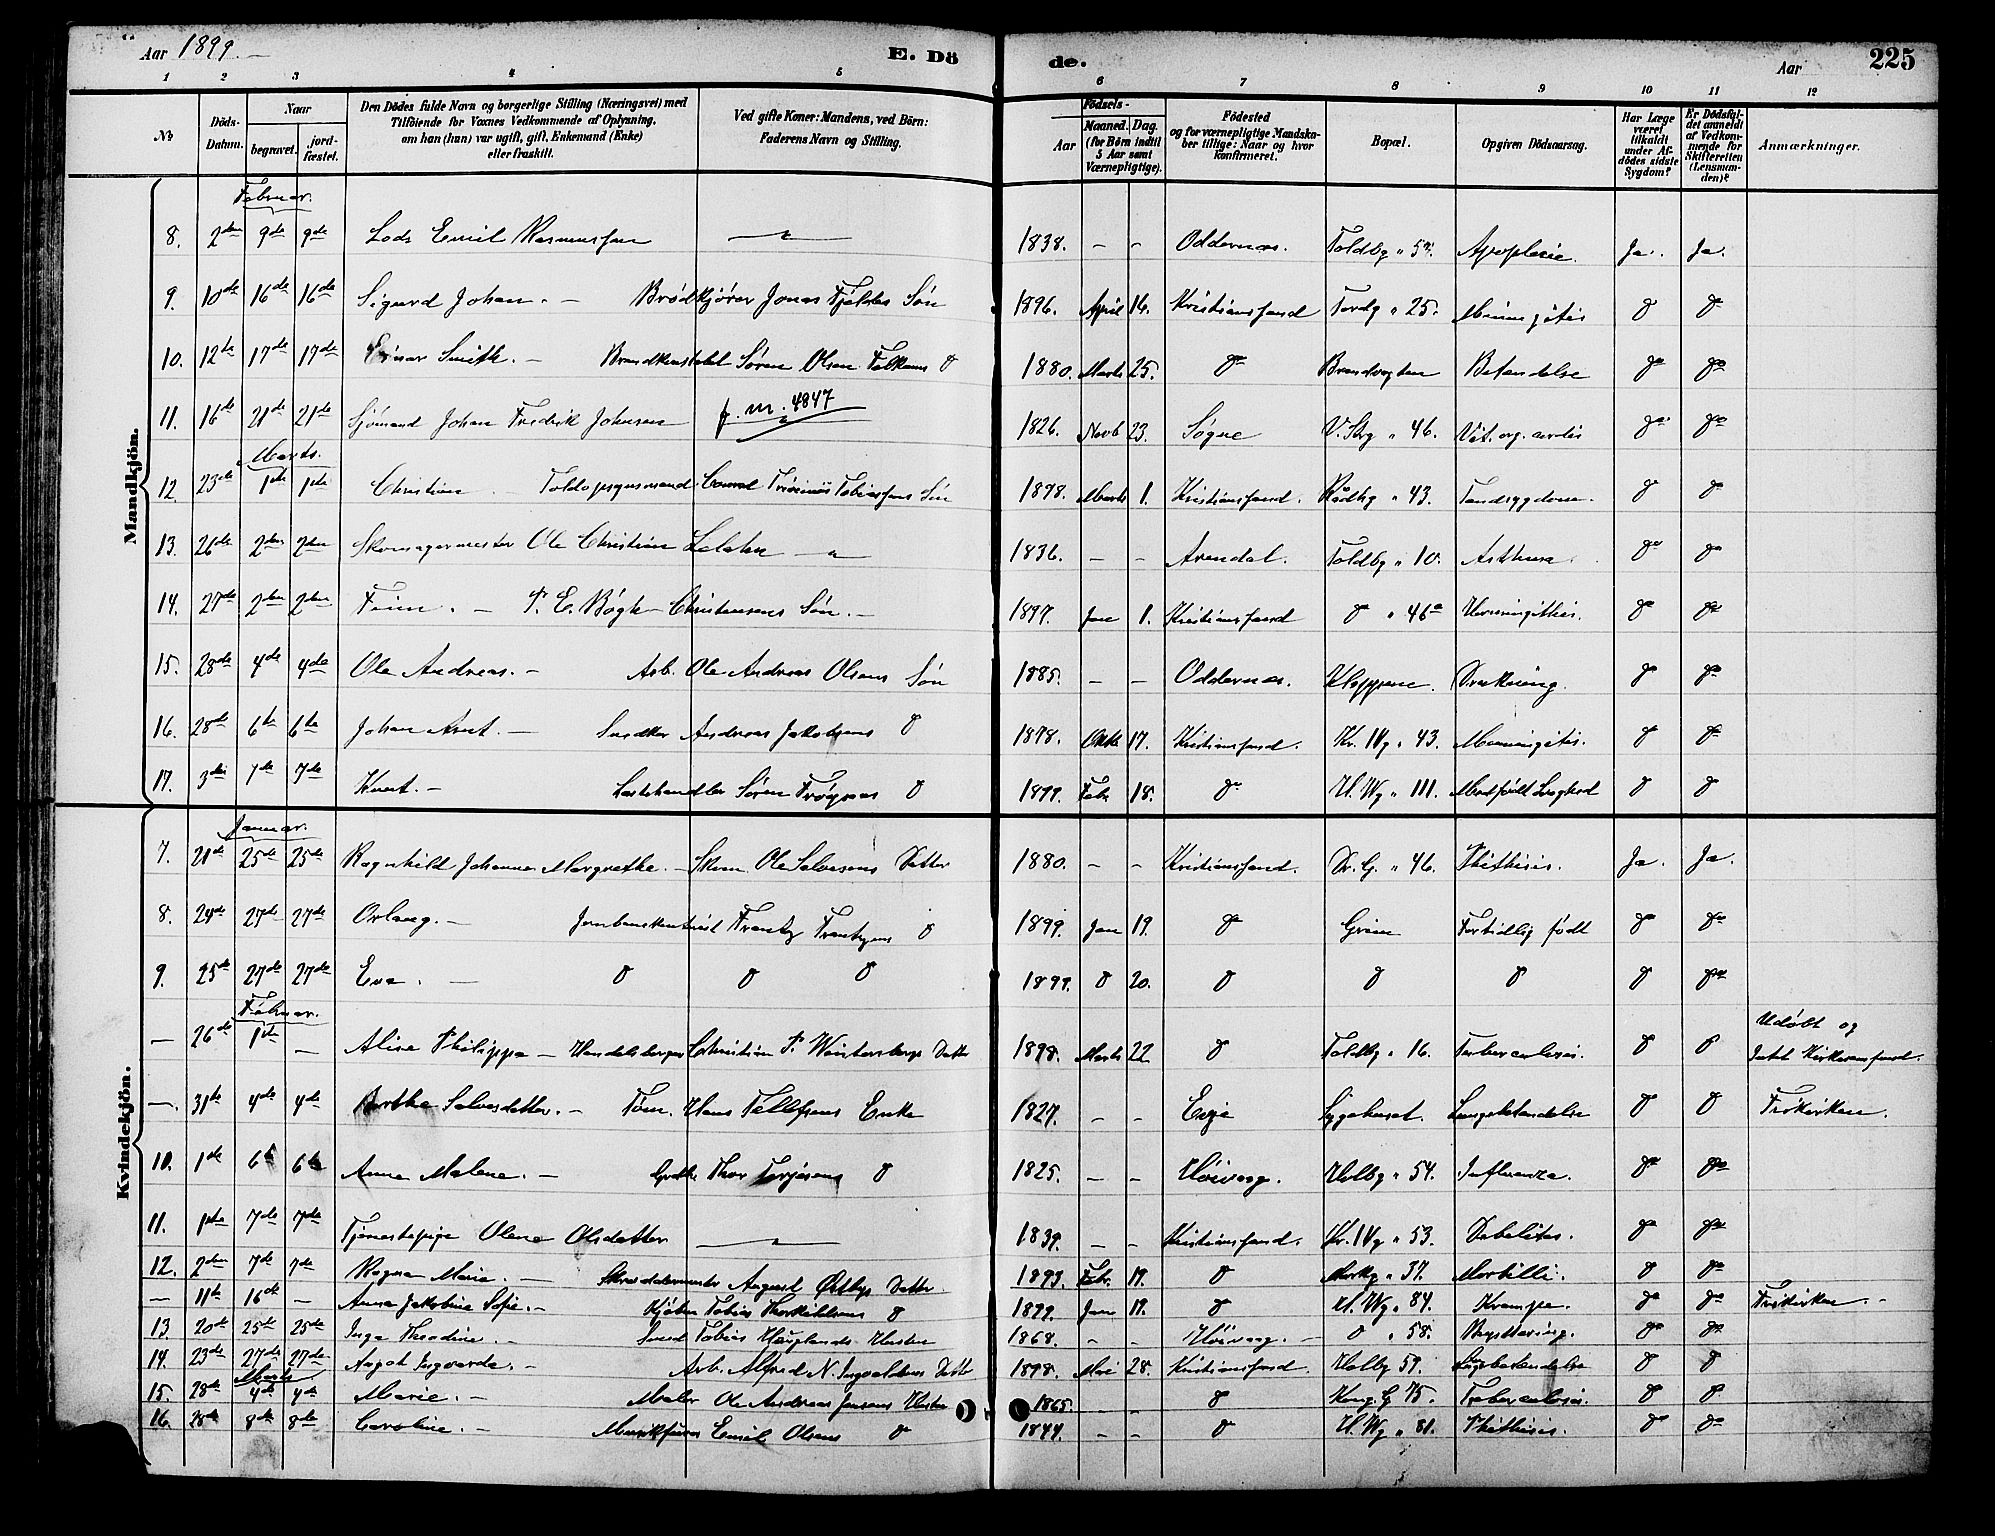 Aar 1899.
E. Dö
de.
Aar
225
1 2 3 4 5 6 7 8 9 10 11 12
№
Döds-Datum.
Naar
begravet. jordfæstet.
Den Dödes fulde Navn og borgerlige Stilling (Næringsvei) med
Tilföiende for Voxnes Vedkommende af Oplysning,
om han (hun) var ugift, gift, Enkemand (Enke)
eller fraskilt.
Ved gifte Koner: Mandens, ved Börn:
Faderens Navn og Stilling.
Födsels-
Aar
Maaned. Dag.
(for Börn indtil
5 Aar samt
Værnepligtige).
Födested
og for værnepligtige Mandska-
ber tillige: Naar og hvor
konfirmeret.
Bopæl.
Opgiven Dödsaarsag.
Har Læge
været
tilkaldt
under Af-
dödes sidste
Sygdom?
Er Dödsfal-
det anmeldt
af Vedkom-
mende for
Skifteretten
(Lensman-
den)?
Anmærkninger.
Mandkjön.
Februar.
8. 2den 9de 9de Lods Emil Rasmussen — 1838. – – Oddernæs. Toldbg " 57. Apoplexie. Ja. Ja.
9. 10de 16de 16de Sigurd Johan. – Brödkjörer Jonas Fjeldes Sön 1896. April 14. Kristianssand " 25. Meningitis do do
10. 12te 17de 17de Einar Smith. – Brandkonstabel Sören Olsen do 1880. Marts 25. do Brandvagten Betændelse do do
11. 16de 21de 21de Sjömand Johan Fredrik Johnsen f. m. 4847 1826. Novb 23. Søgne V. Strg " 46. Vit. org. cordis do do
Marts.
12. 23de 1ste 1ste Christian. Toldopsynsmand Tobiassens Sön 1898. Marts 1. Kristianssand. Rådhg " 43. Tandsygdom. do do
13. 26de 2den 2den Skomagermester Ole Christian — 1836. – – Arendal. Toldbg " 10. Asthma. do do
14. 27de 2den 2den Finn. – P. E. Bögh Christensens Sön. – 1897. Jan 1. Kristianssand do " 46a Meningitis. do do
15. 28de 4de 4de Ole Andreas. – Arb. Ole Andreas Olsens Sön 1885. – – Oddernæs. Kloppene. Drukning. do do
16. 28de 6te 6te Johan Arnt. – Snedker Andreas Jakobsens do 1878. Oktb 17. Kristianssand. Kr. IVg " 43. Meningitis. do do
17. 3die 7de 7de Knut. – Sören Frögnes do 1899. Febr 18. do H. Wg " 111. Medfödt Svaghed do do
Kvindekjön.
Januar.
7. 21de 25de 25de Ragnhild Johanne Margrethe. – Skom. Ole Salvesens Datter 1880. – – Kristianssand. Dr. G. " 46. Phthisis. Ja. Ja.
8. 24de 27de 27de Orlaug. – Jernbanekontrol Frantz Frantzens do 1899. Jan 19. do Grim Fortidlig födt do do
9. 25de 27de 27de Eva. – do do do 1899. do 20. do do do do do
Februar.
– 26de 1ste – Alise Philippa – Handelsborger Christian P. Wintersbergs Datter 1898. Marts 22 do Toldbg " 16. Tuberculosis. do do Udöbt og
–. 31te 4de 4de Berthe Salvesdatter. – Töm. Hans Tellefsens Enke 1827. – – Evje Sygehuset. Lungebetændelse do do Frikirken.
10. 1ste 6te 6te Anna Malene. – Thor Terjesens do 1825. – – Høivaag. Holbg " 54. Influenza. do do
11. 1ste 7de 7de Tjenestepige Olene Olsdatter — 1839. – – Kristianssand. Kr. IVg " 53. Debilitas. do do
12. 2den 7de 7de Ragna Marie. – Skræddermester August Østbys Datter. 1893. Febr. 19. do Markg " 37. Morbilli. do do
– 11te 16de – Anna Jakobine Sofie. – Kjöbm Tobias Thorkildsens do 1899. Jan 19. do H. Wg " 84. Krampe. do do Frikirken. –
13. 20de 25de 25de Inga Theodine. – Smed Tobias Hauglands Hustru 1868. – – Høivaag. – do " 58. do do
14. 23de 27de 27de Aagot Ingvarda. – Arb. Alfred N. Ingvaldsens Datter 1898. Mai 28. Kristianssand. Holbg 59. Lungebetændelse do do
Marts
15. 28de 4de 4de Marie. – Maler Ole Andreas Jensens Hustru 1865. – – do Kong. G 75. Tuberculosis. do do
16. 28de 8de 8de Caroline. – Emil Olsens do 1844. – – do H. Wg " 81. Phthisis. do do